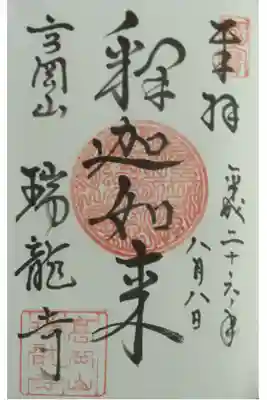 奉拝
平成二十六年
八月八日
釋迦如来
高岡山
瑞龍寺